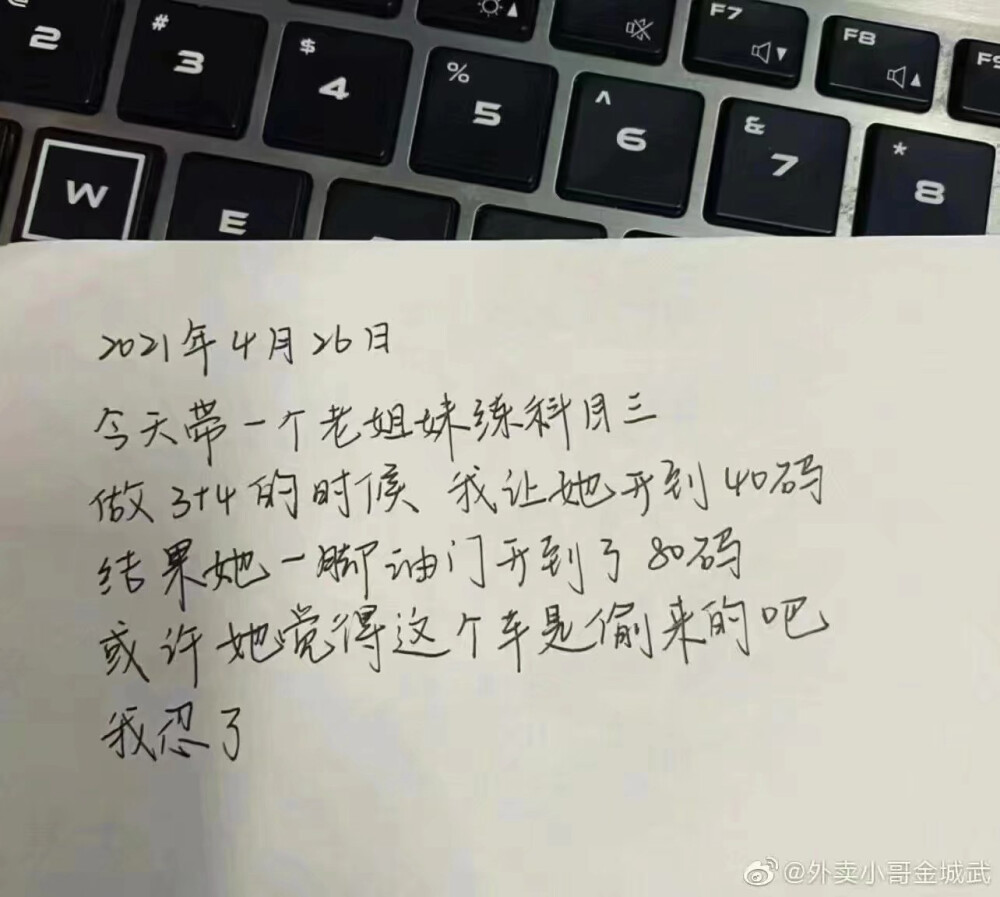 2
# 3
$ 4
% 5
^ 6
& 7
* 8
F7
F8
F9
W
E
2021年4月26日
今天带一个老姐妹练科目三
做3+4的时候 我让她开到40码
结果她一脚油门开到了80码
或许她觉得这个车是偷来的吧
我忍了
@外卖小哥金城武